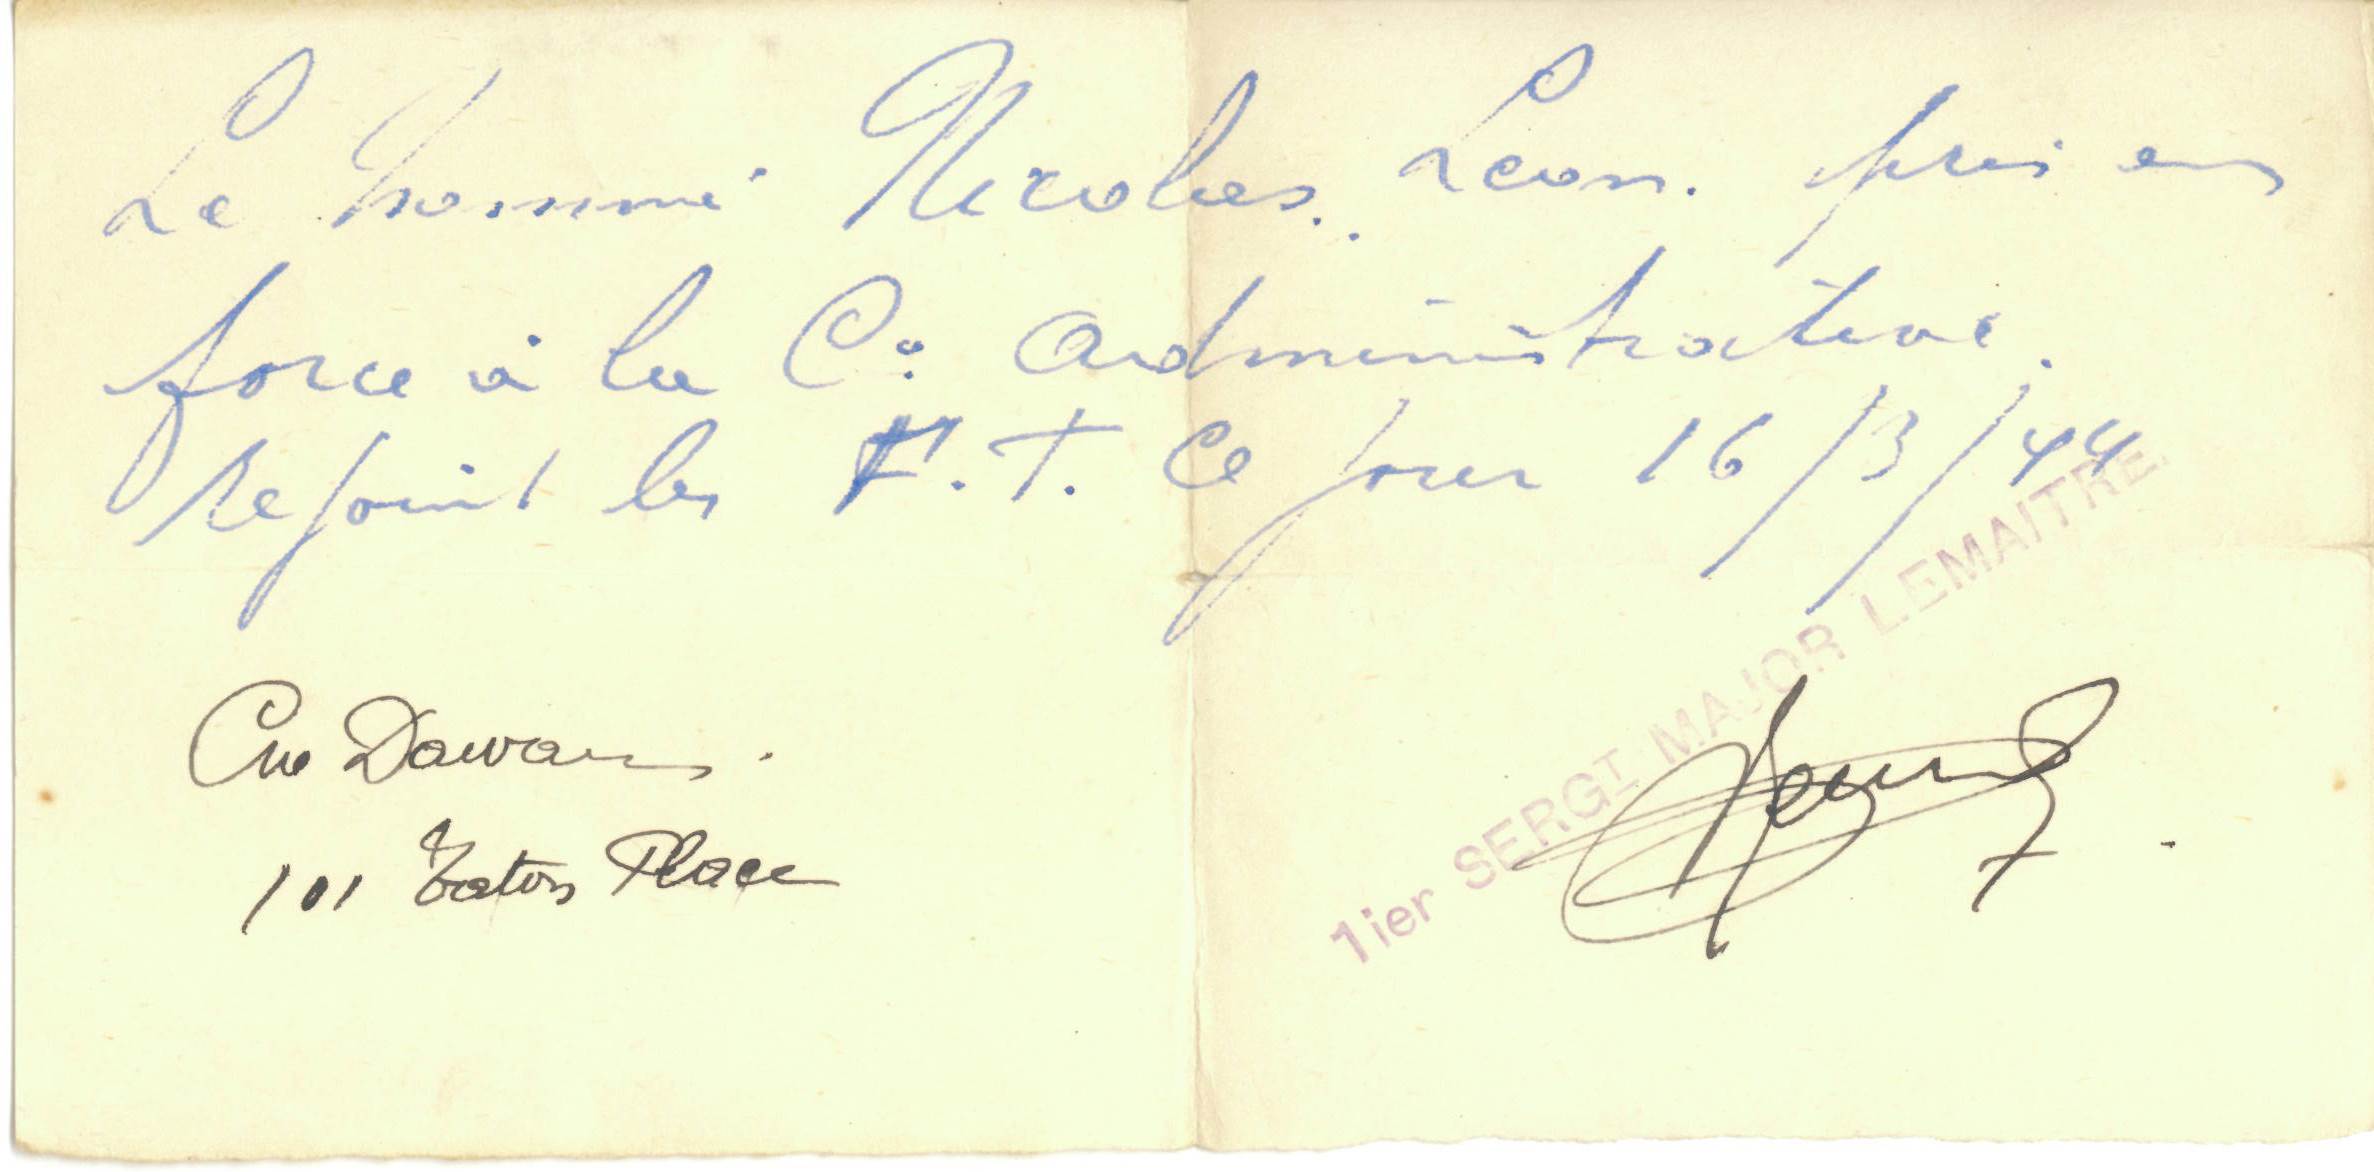 Le nommé Nicolas. Leon. pris en
force à la Cie Administrative.
rejoint les F.T. Ce jour 16/3/44
1ier SERGT MAJOR LEMAITRE
Cne Dawans.
101 Eaton Place